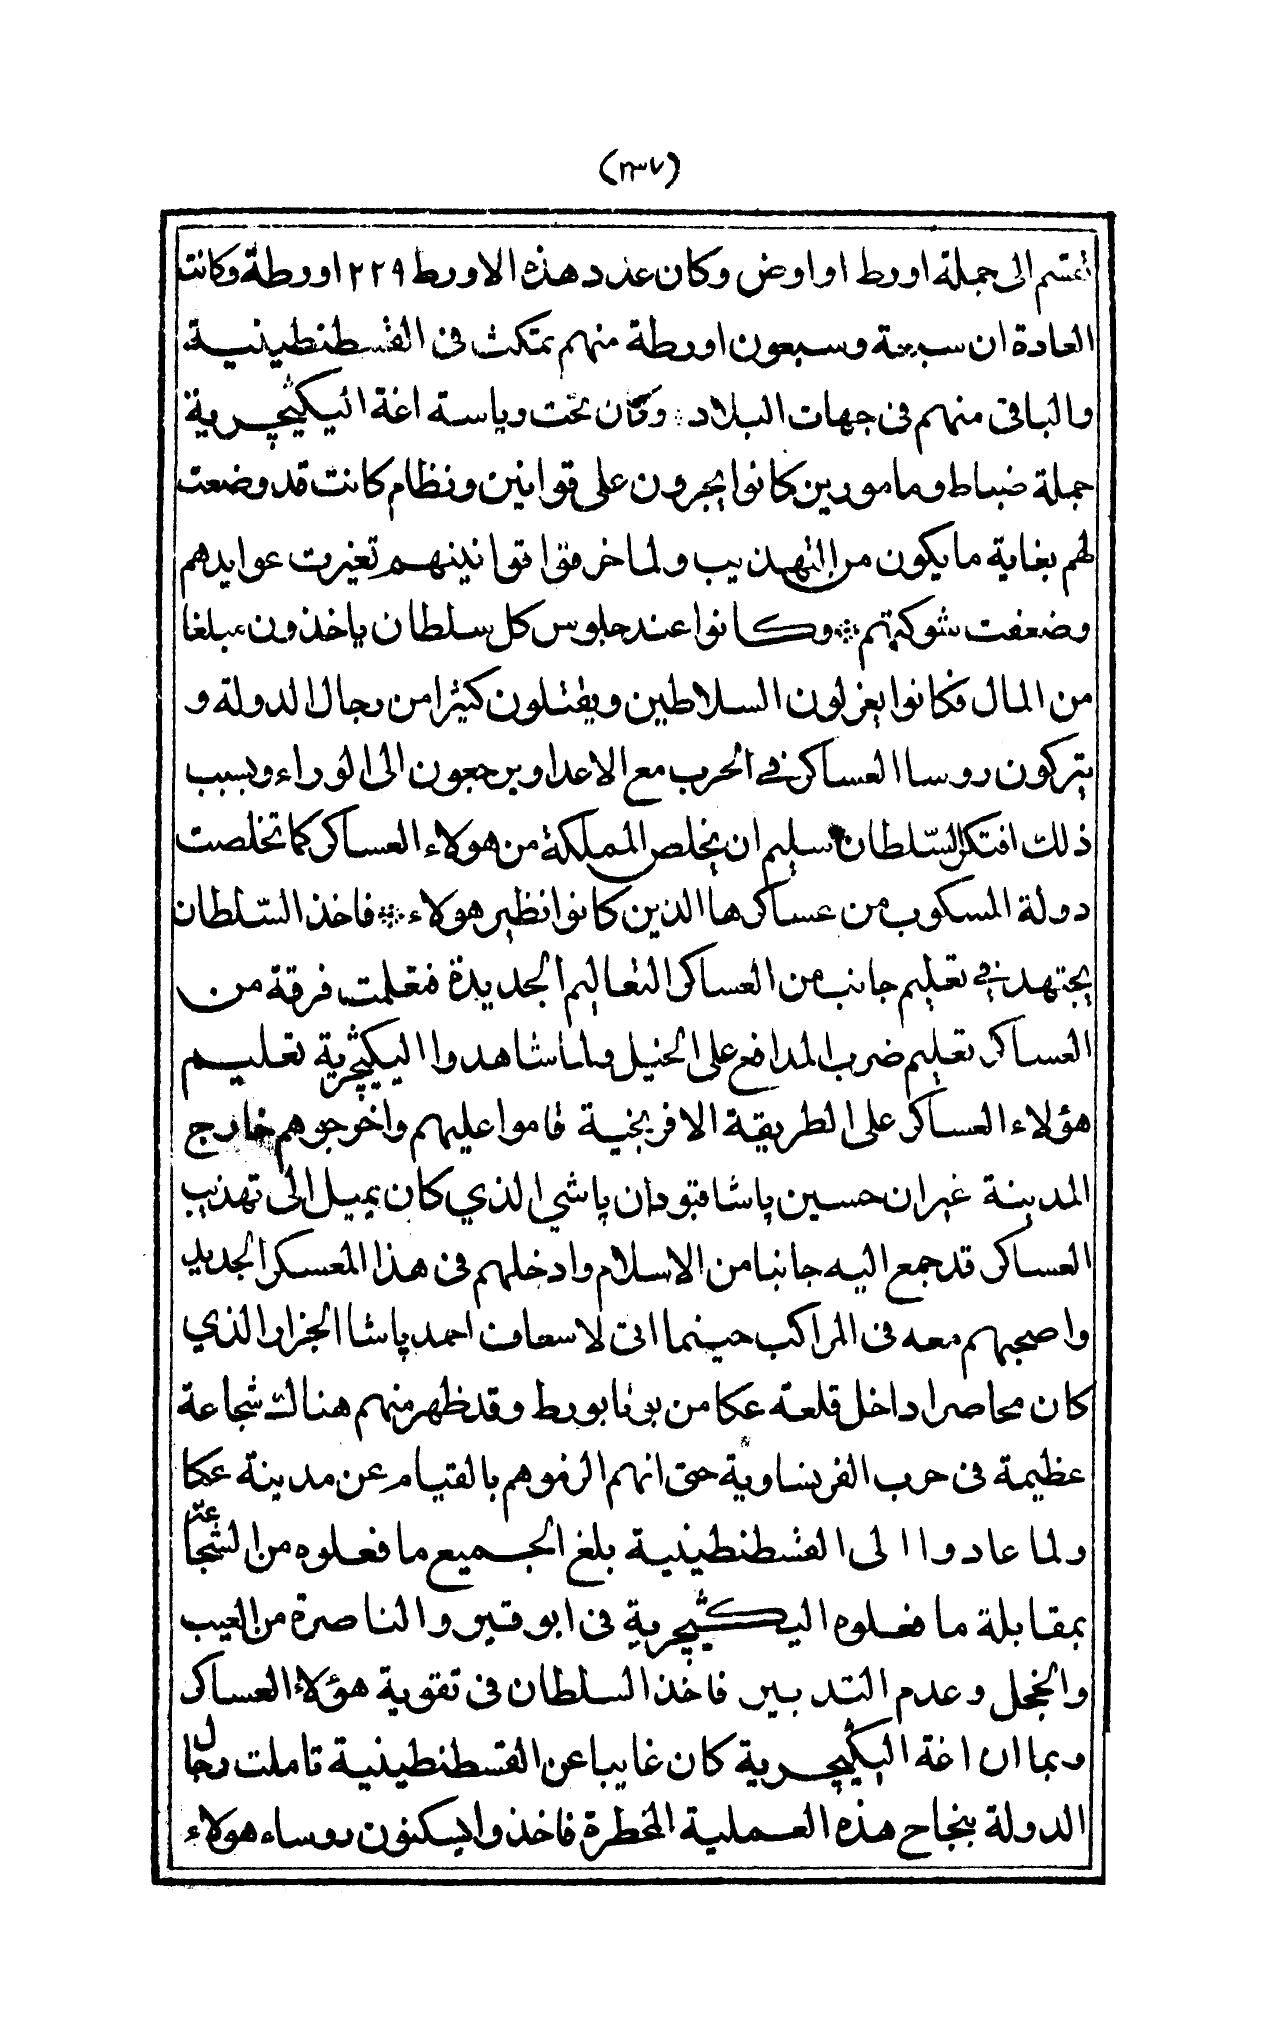 (٢٣٧)
تقسم الى جملة اورط او اوض وكان عدد هذه الاورط ٢٢٩ اورطة وكانت
العادة ان سبعة وسبعون اورطة منهم تمكث فى القسطنطينية
والباقى منهم فى جهات البلاد ❊ وكان تحت رياسة اغة اليكيچرية
جملة ضباط ومامورين كانوا يجرون على قوانين ونظام كانت قد وضعت
لهم بغاية ما يكون من التهذيب ولما خرقوا قوانينهم تغيرت عوايدهم
وضعفت شوكتهم ❊ وكانوا عند جلوس كل سلطان ياخذون مبلغا
من المال فكانوا يعزلون السلاطين ويقتلون كثيرا من رجال الدولة و
يتركون روسا العساكر فى الحرب مع الاعدا ويرجعون الى الوراء وبسبب
ذلك افتكر السّلطان سليم ان يخلص المملكة من هولاء العساكر كما تخلصت
دولة المسكوب من عساكرها الذين كانوا نظير هولاء ❊ فاخذ السّلطان
يجتهد فى تعليم جانب من العساكر التعاليم الجديدة فتعلمت فرقة من
العساكر تعليم ضرب المدافع على الخيل ولما شاهدوا اليكيچرية تعليم
هؤلاء العساكر على الطريقة الافرنجية قاموا عليهم واخرجوهم خارج
المدينة غير ان حسين پاشا قبودان پاشي الذي كان يميل الى تهذيب
العساكر قد جمع اليه جانبا من الاسلام وادخلهم فى هذا المعسكر الجديد
واصحبهم معه فى المراكب حينما اتى لاسعاف احمد پاشا الجزار الذي
كان محاصرا داخل قلعة عكا من بونابورط وقد ظهر منهم هنالك شجاعة
عظيمة فى حرب الفرنساوية حتى انهم الزموهم بالقيام عن مدينة عكا
ولما عادوا الى القسطنطينية بلغ الجميع ما فعلوه من الشجاعة
بمقابلة ما فعلوه اليكيچرية فى ابو قير والناصرة من العيب
والخجل وعدم التدبير فاخذ السلطان فى تقوية هؤلاء العساكر
وبما ان اغة اليكيچرية كان غايبا عن القسطنطينية تاملت رجال
الدولة بنجاح هذه العملية الخطرة فاخذوا يسكنون روساء هولاء